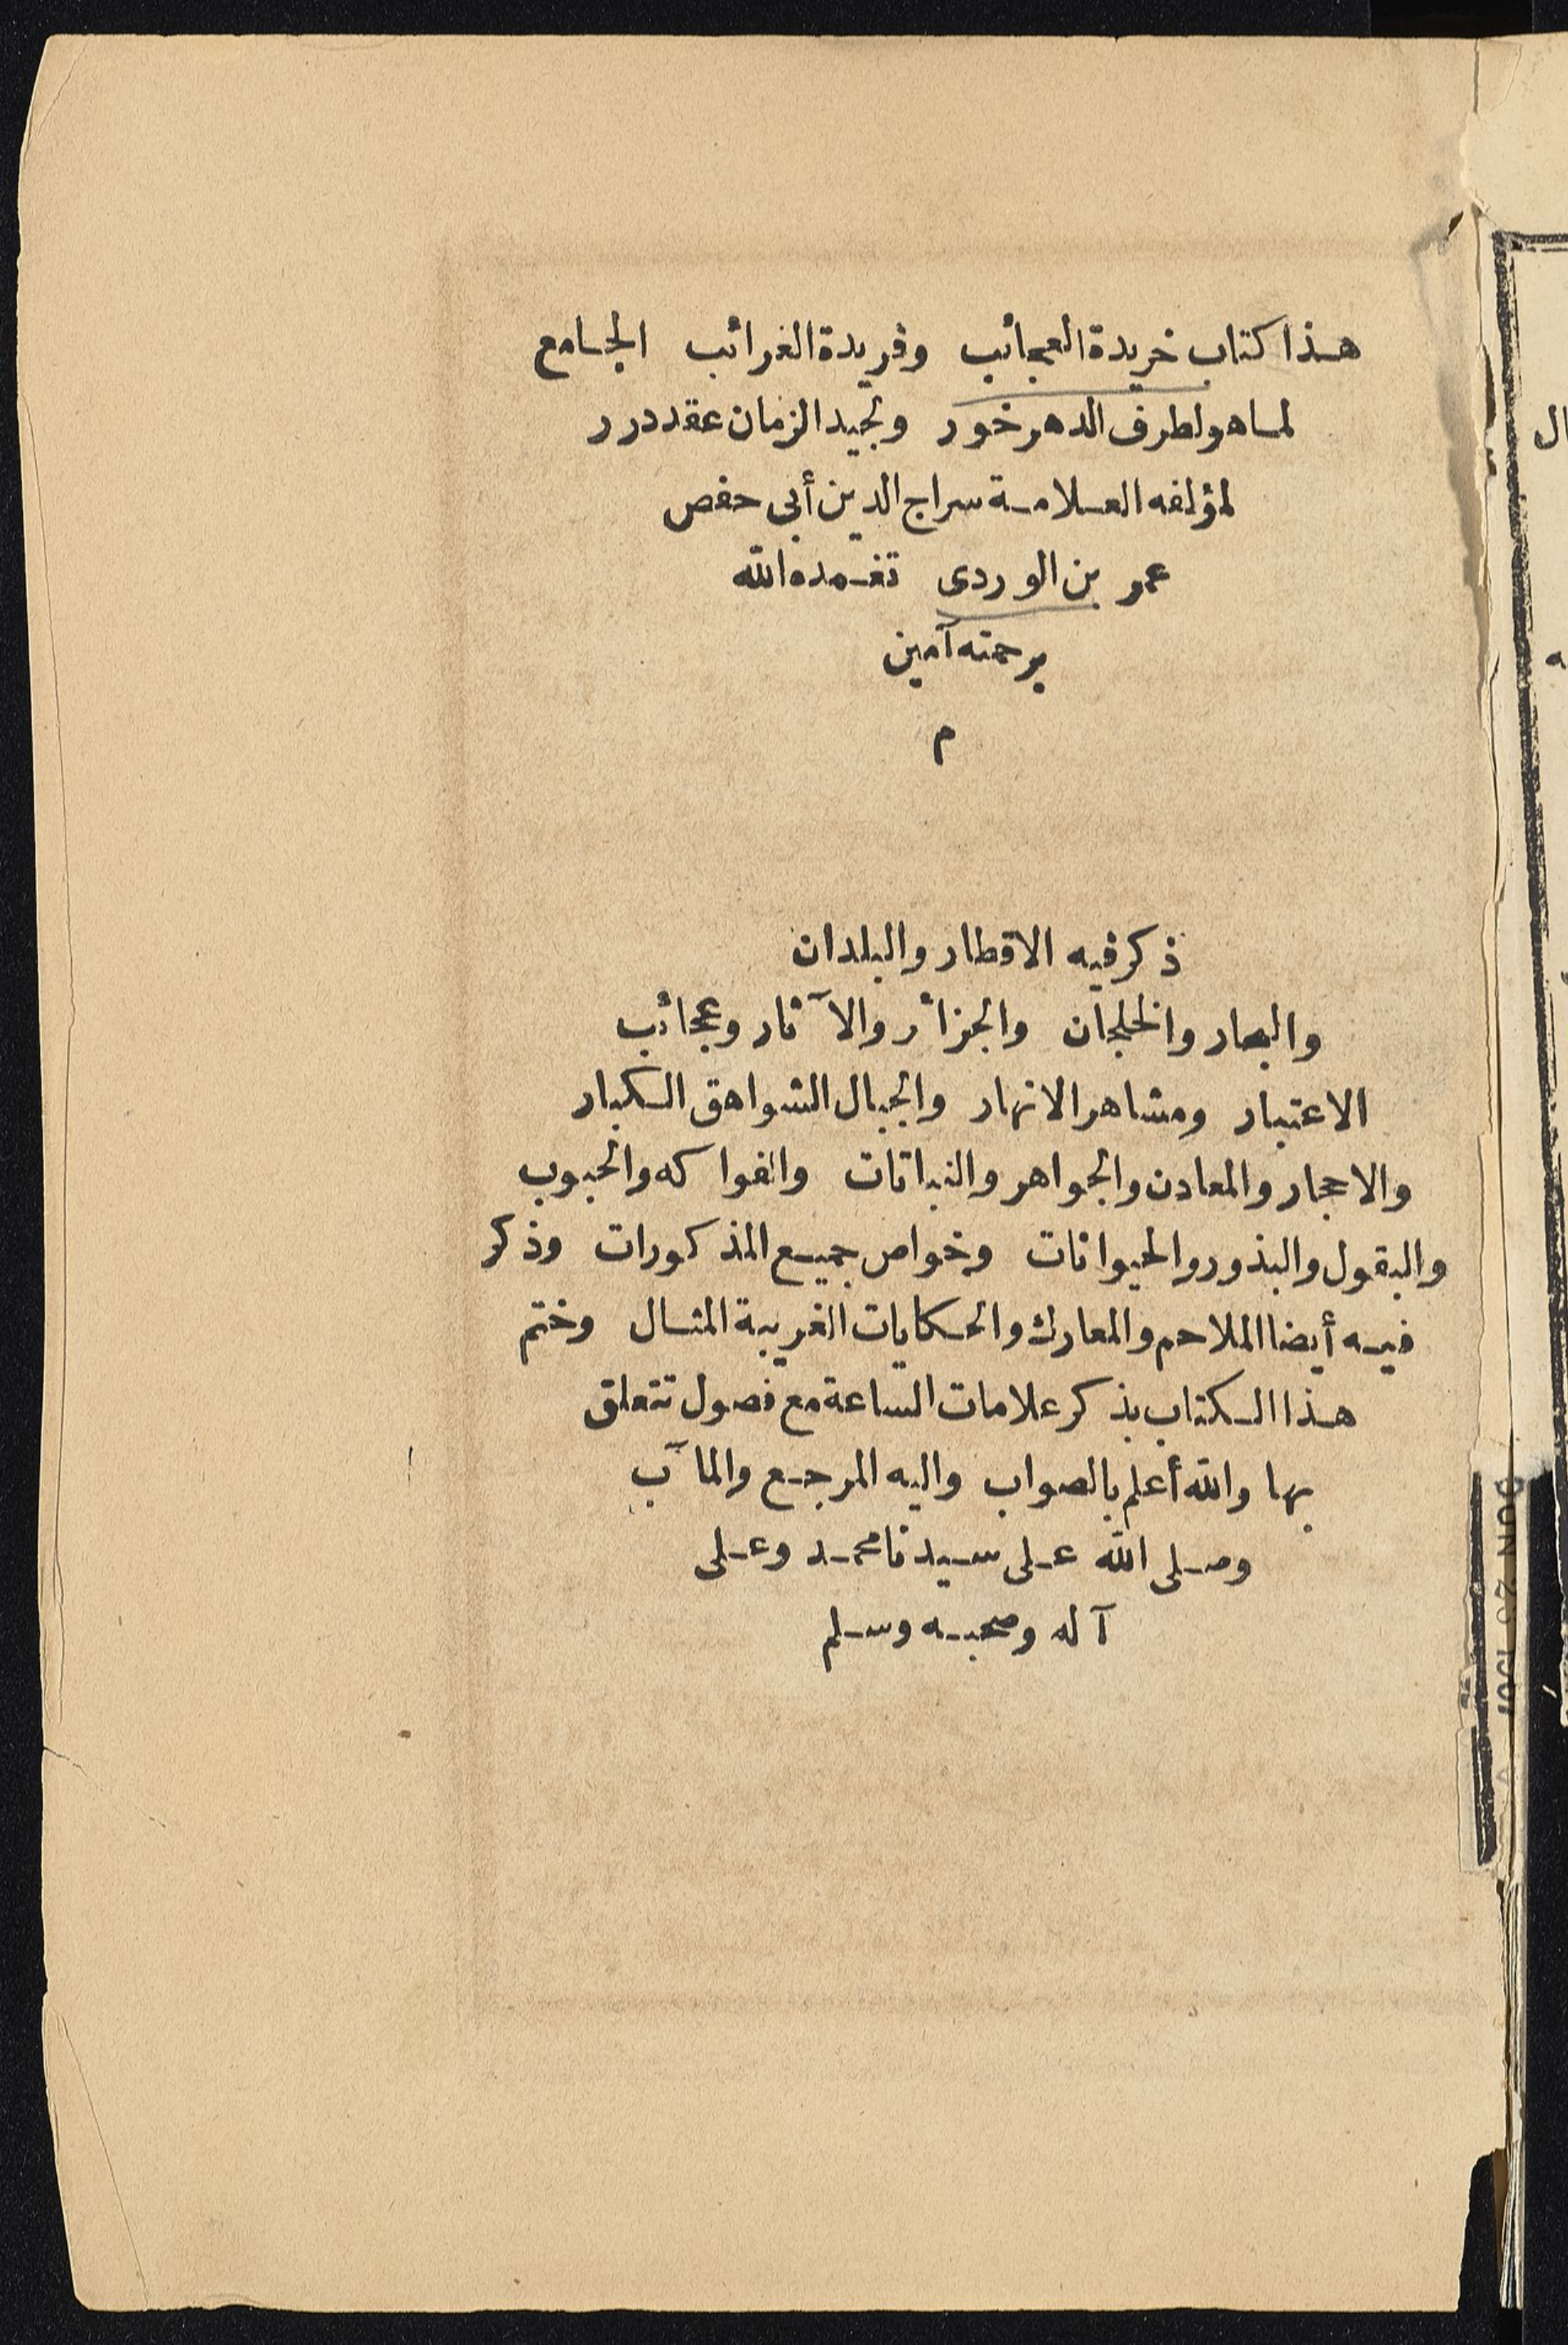 هذا كتاب خريدة العجائب وفريدة الغرائب الجامع
لما هو لطرف الدهر خور ولجيد الزمان عقد درر
لمؤلفه العلامة سراج الدين أبى حفص
عمر بن الوردى تغمده الله
برحمته آمين
م
ذكر فيه الاقطار والبلدان
والبحار والخلجان والجزائر والآثار وعجائب
الاعتبار ومشاهر الانهار والجبال الشواهق الكبار
والاحجار والمعادن والجواهر والنباتات والفواكه والحبوب
والبقول والبذور والحيوانات وخواص جميع المذكورات وذكر
فيه أيضا الملاحم والمعارك والحكايات الغريبة المثال وختم
هذا الكتاب بذكر علامات الساعة مع فصول تتعلق
بها والله أعلم بالصواب واليه المرجع والمآب
وصلى الله على سيدنا محمد وعلى
آله وصحبه وسلم